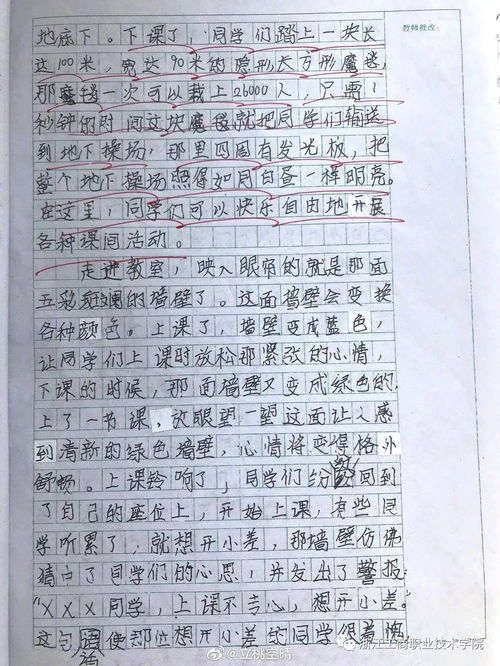 教师批改:
地底下。下课了，同学们踏上一块长
达100米，宽达90米的隐形大方形魔毯，
那魔毯一次可以载上26000人，只需1
秒钟的时间这块魔毯就把同学们输送
到地下操场，那里四周有发光板，把
整个地下操场照得如同白昼一样明亮。
在这里，同学们可以快乐自由地开展
各种课间活动。
走进教室，映入眼帘的就是那面
五彩斑斓的墙壁了。这面墙壁会变换
各种颜色。上课了，墙壁变成蓝色，
让同学们上课时放松那紧张的心情，
下课的时候，那面墙壁又变成绿色的，
上了一节课，放眼望一望这面让人感
到清新的绿色墙壁，心情将变得格外
舒畅。上课铃响了，同学们纷纷回到
了自己的座位上，开始上课，有些同
学听累了，就想开小差，那墙壁仿佛
猜中了同学们的心思，并发出了警报：
“XXX同学，上课不专心，想开小差。”
这句话使那位想开小差的同学很羞愧
@立桃空晴
浙江工商职业技术学院